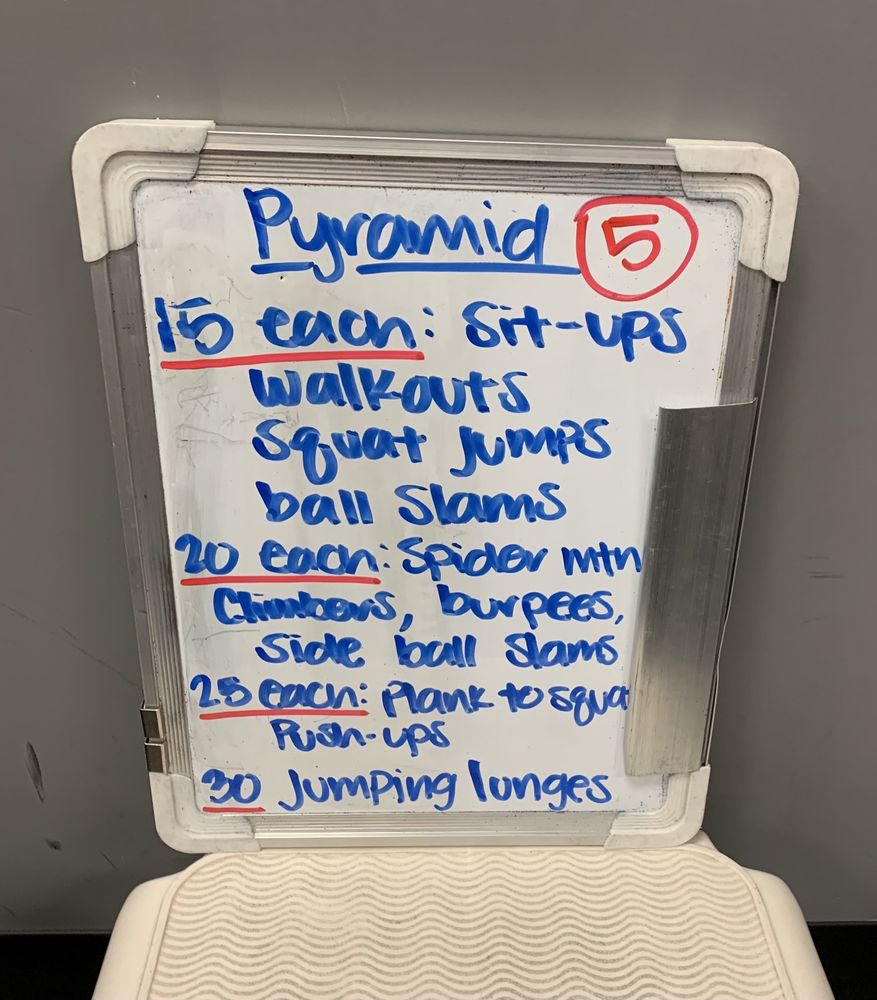 Pyramid 5
15 each: Sit-ups
Walkouts
Squat jumps
ball slams
20 each: Spider mtn
Climbers, burpees,
Side ball slams
25 each: Plank to squa
Push-ups
30 Jumping lunges